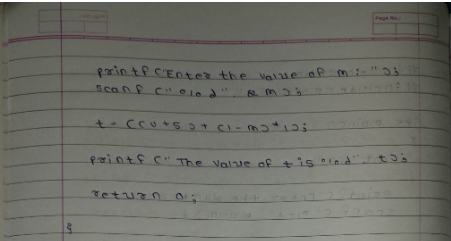 Page No.:
printf ("Enter the value of m :- ");
scanf ("%d", & m);
t = ((u+s)+(1-m)*1);
printf (" The value of t is %d", t);
return 0;
}